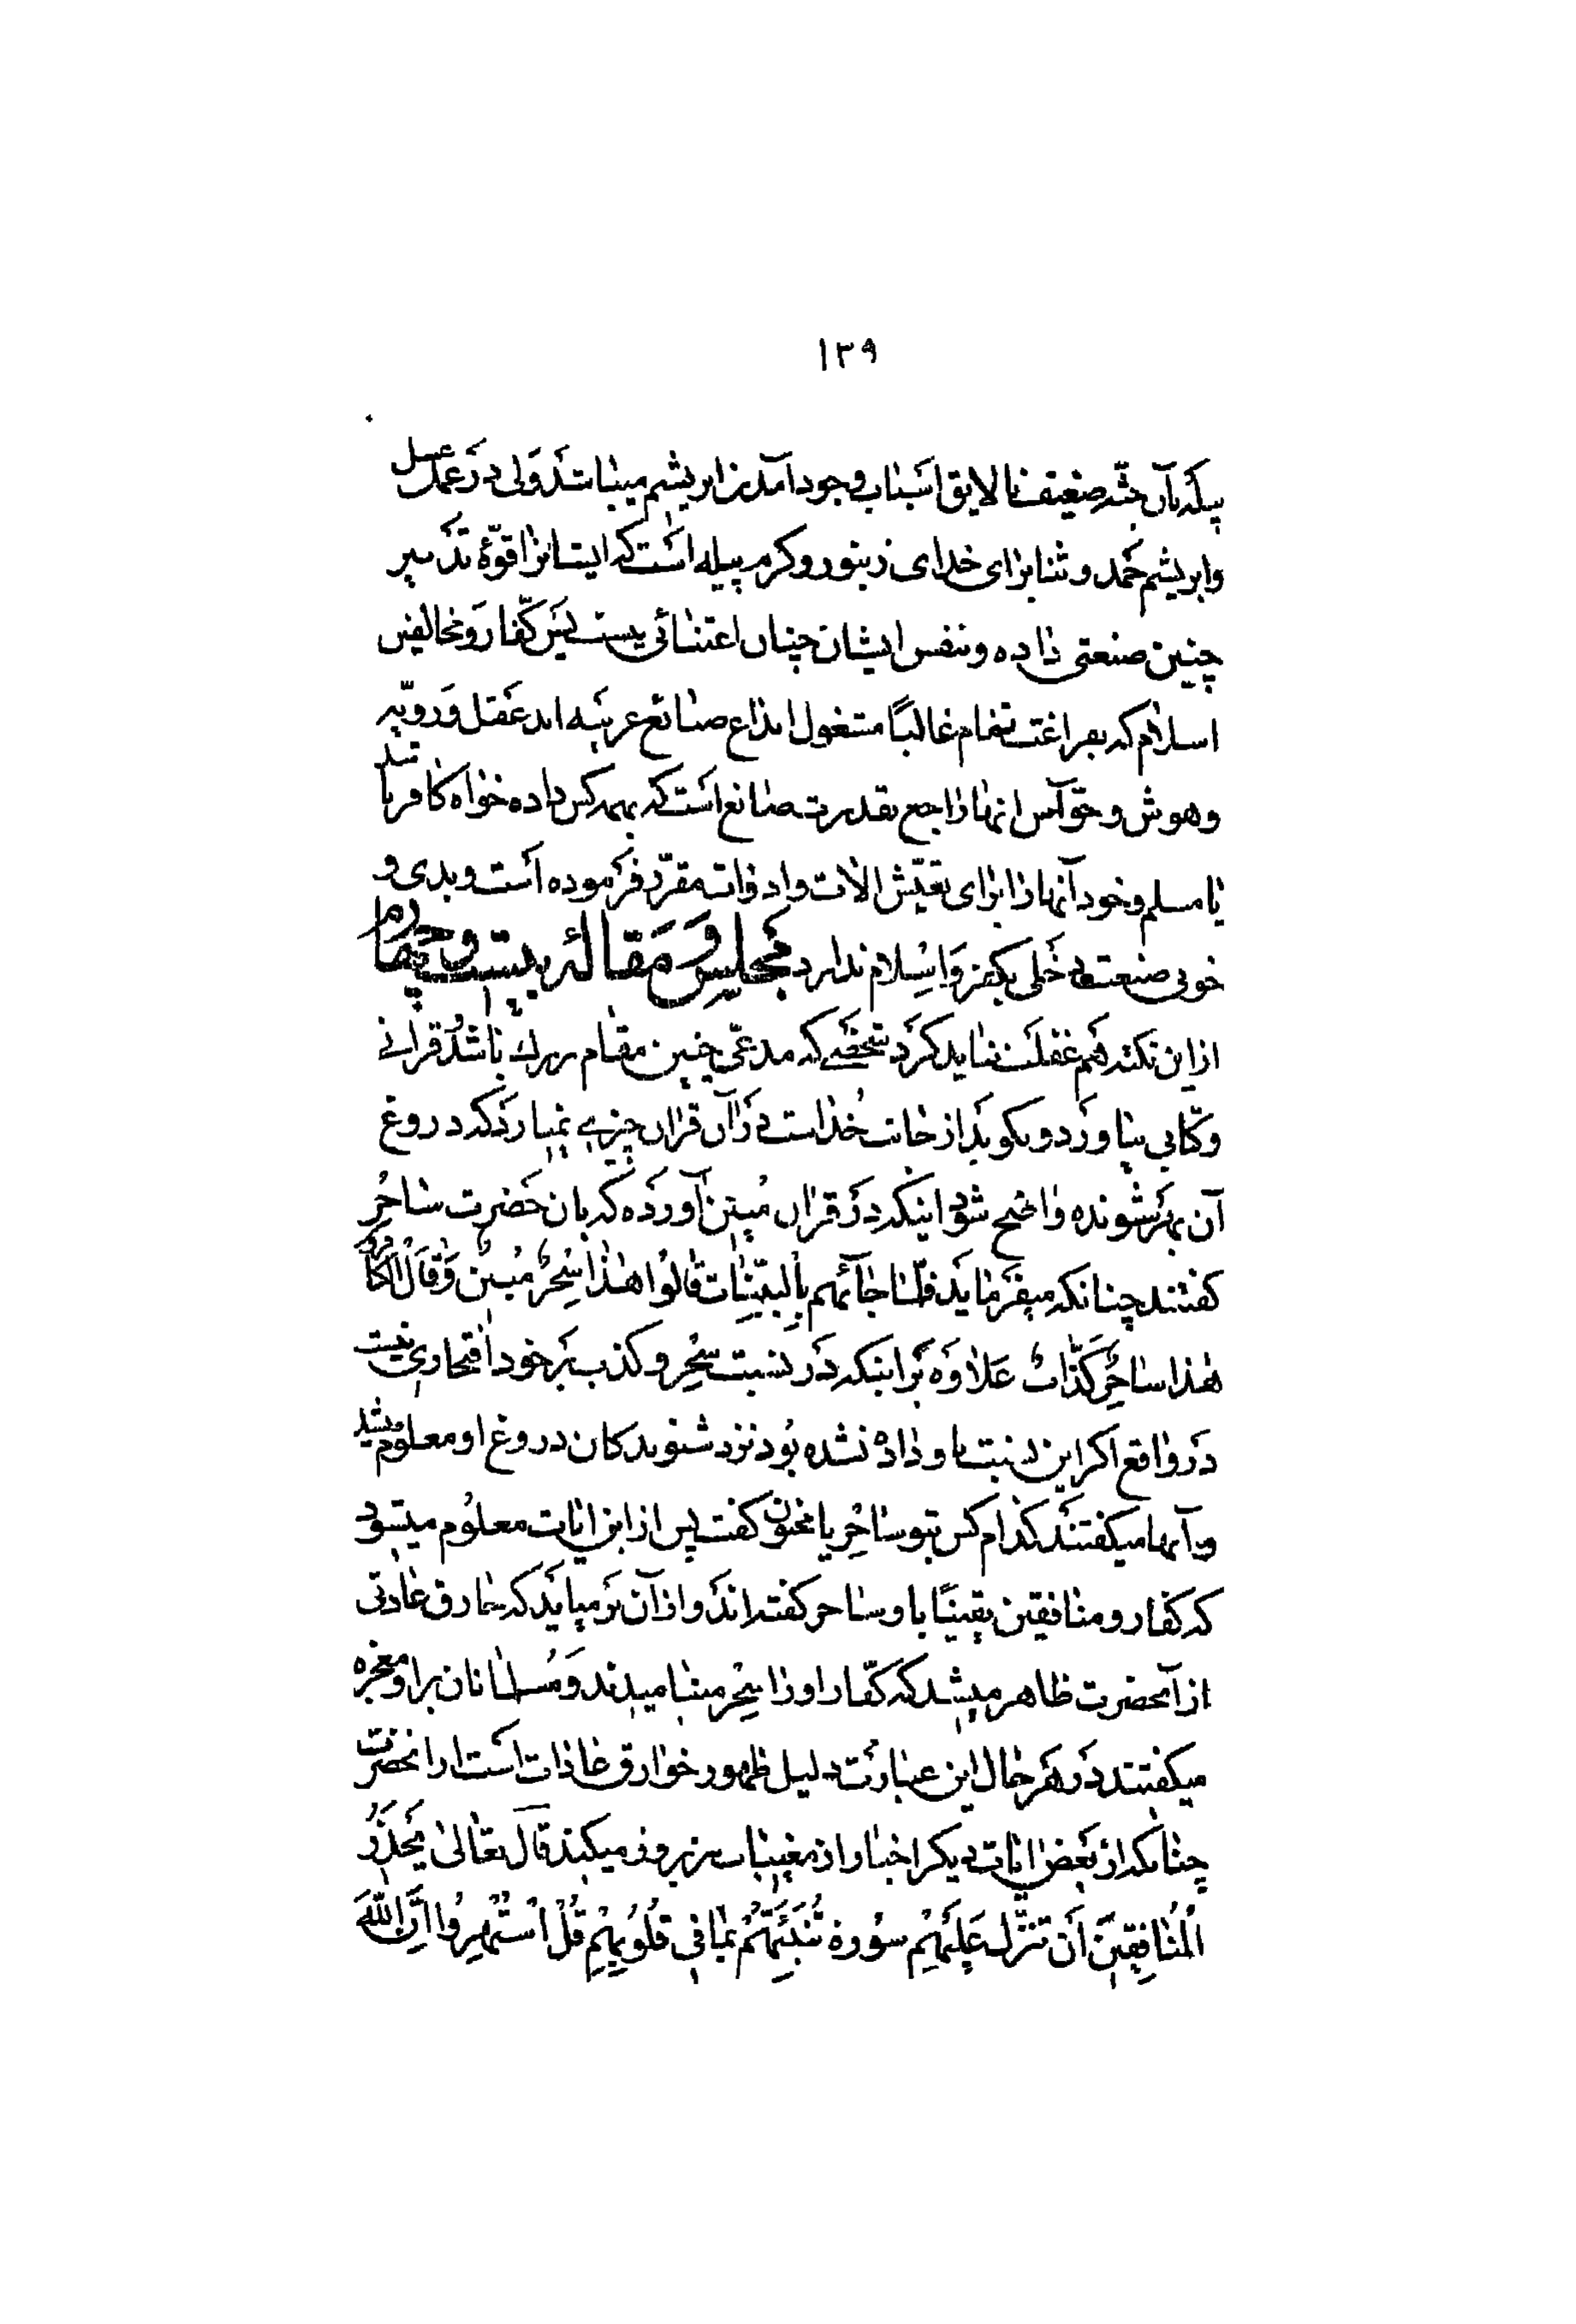 ١٣٩
پیله بآن جثه ضعیف نالایق اسباب وجود آمدن ابریشم میباشد ولی در عمل عسل
وابریشم حمد و ثنا برای خدای زنبور و کرم پیله است که ایشانرا قوّۀ تدبیر
چنین صنعتی داده و بنفس ایشان چنان اعتنائی نیست پس کفّار و مخالفین
اسلام که بفراغت تمام غالبًا مشغول ابداع صنائع غریبه اند عقل و رویّه
وهوش و حواس انها راجع بقدرت صانع است که بهمه کس داده خواه کافر باشد
یا مسلم و خود آنها را برای تعیّش الات و ادوات مقرّر فرموده است و بدی و
خوبی صنعت دخلی بکفر و اسلام ندارد مجلس و مقاله بیست و چهارم
از این نکته هم غفلت نباید کرد شخصی که مدعّی چنین مقام بزرك باشد قرانی
وکتابی بیاورد و بگوید از جانب خداست در آن قران چیزی نمیارد که دروغ
آن بهر شنونده واضح شود اینکه در قران مبین آورده که بان حضرت ساحر
گفتند چنانکه میفرماید فلمّا جائهم بالبیّنات قالوا هذا سحرٌ مبینٌ وَقالَ الکافرون
هذا ساحرٌ کذّابٌ علاوه بر اینکه در نسبت سحر و کذب بر خود افتخاری نیست
در واقع اکر این نسبت باو داده نشده بود نزد شنوندکان دروغ او معلوم میشد
و آنها میکفتند کدام کس بتو ساحر یا مجنون کفت پس از این ایات معلوم میشود
که کفار و منافقین یقینًا باو ساحر کفته اند و از آن بر میاید که خارق عادتی
از آنحضرت ظاهر میشد که کفّار او را سحر مینامیدند و مسلمانان براو معجزه
میکفتند در هر حال این عبارت دلیل ظهور خوارق عادات است از انحضرت
چنانکه از بعض ایات دیکر اخبار از مغیبات نیز بروز میکند قال تعالی یحذر
المنافقینَ أَن تنزّل علیهم سورة تنبئهم بما فی قلوبهم قُل استهزؤا انّ اللّه